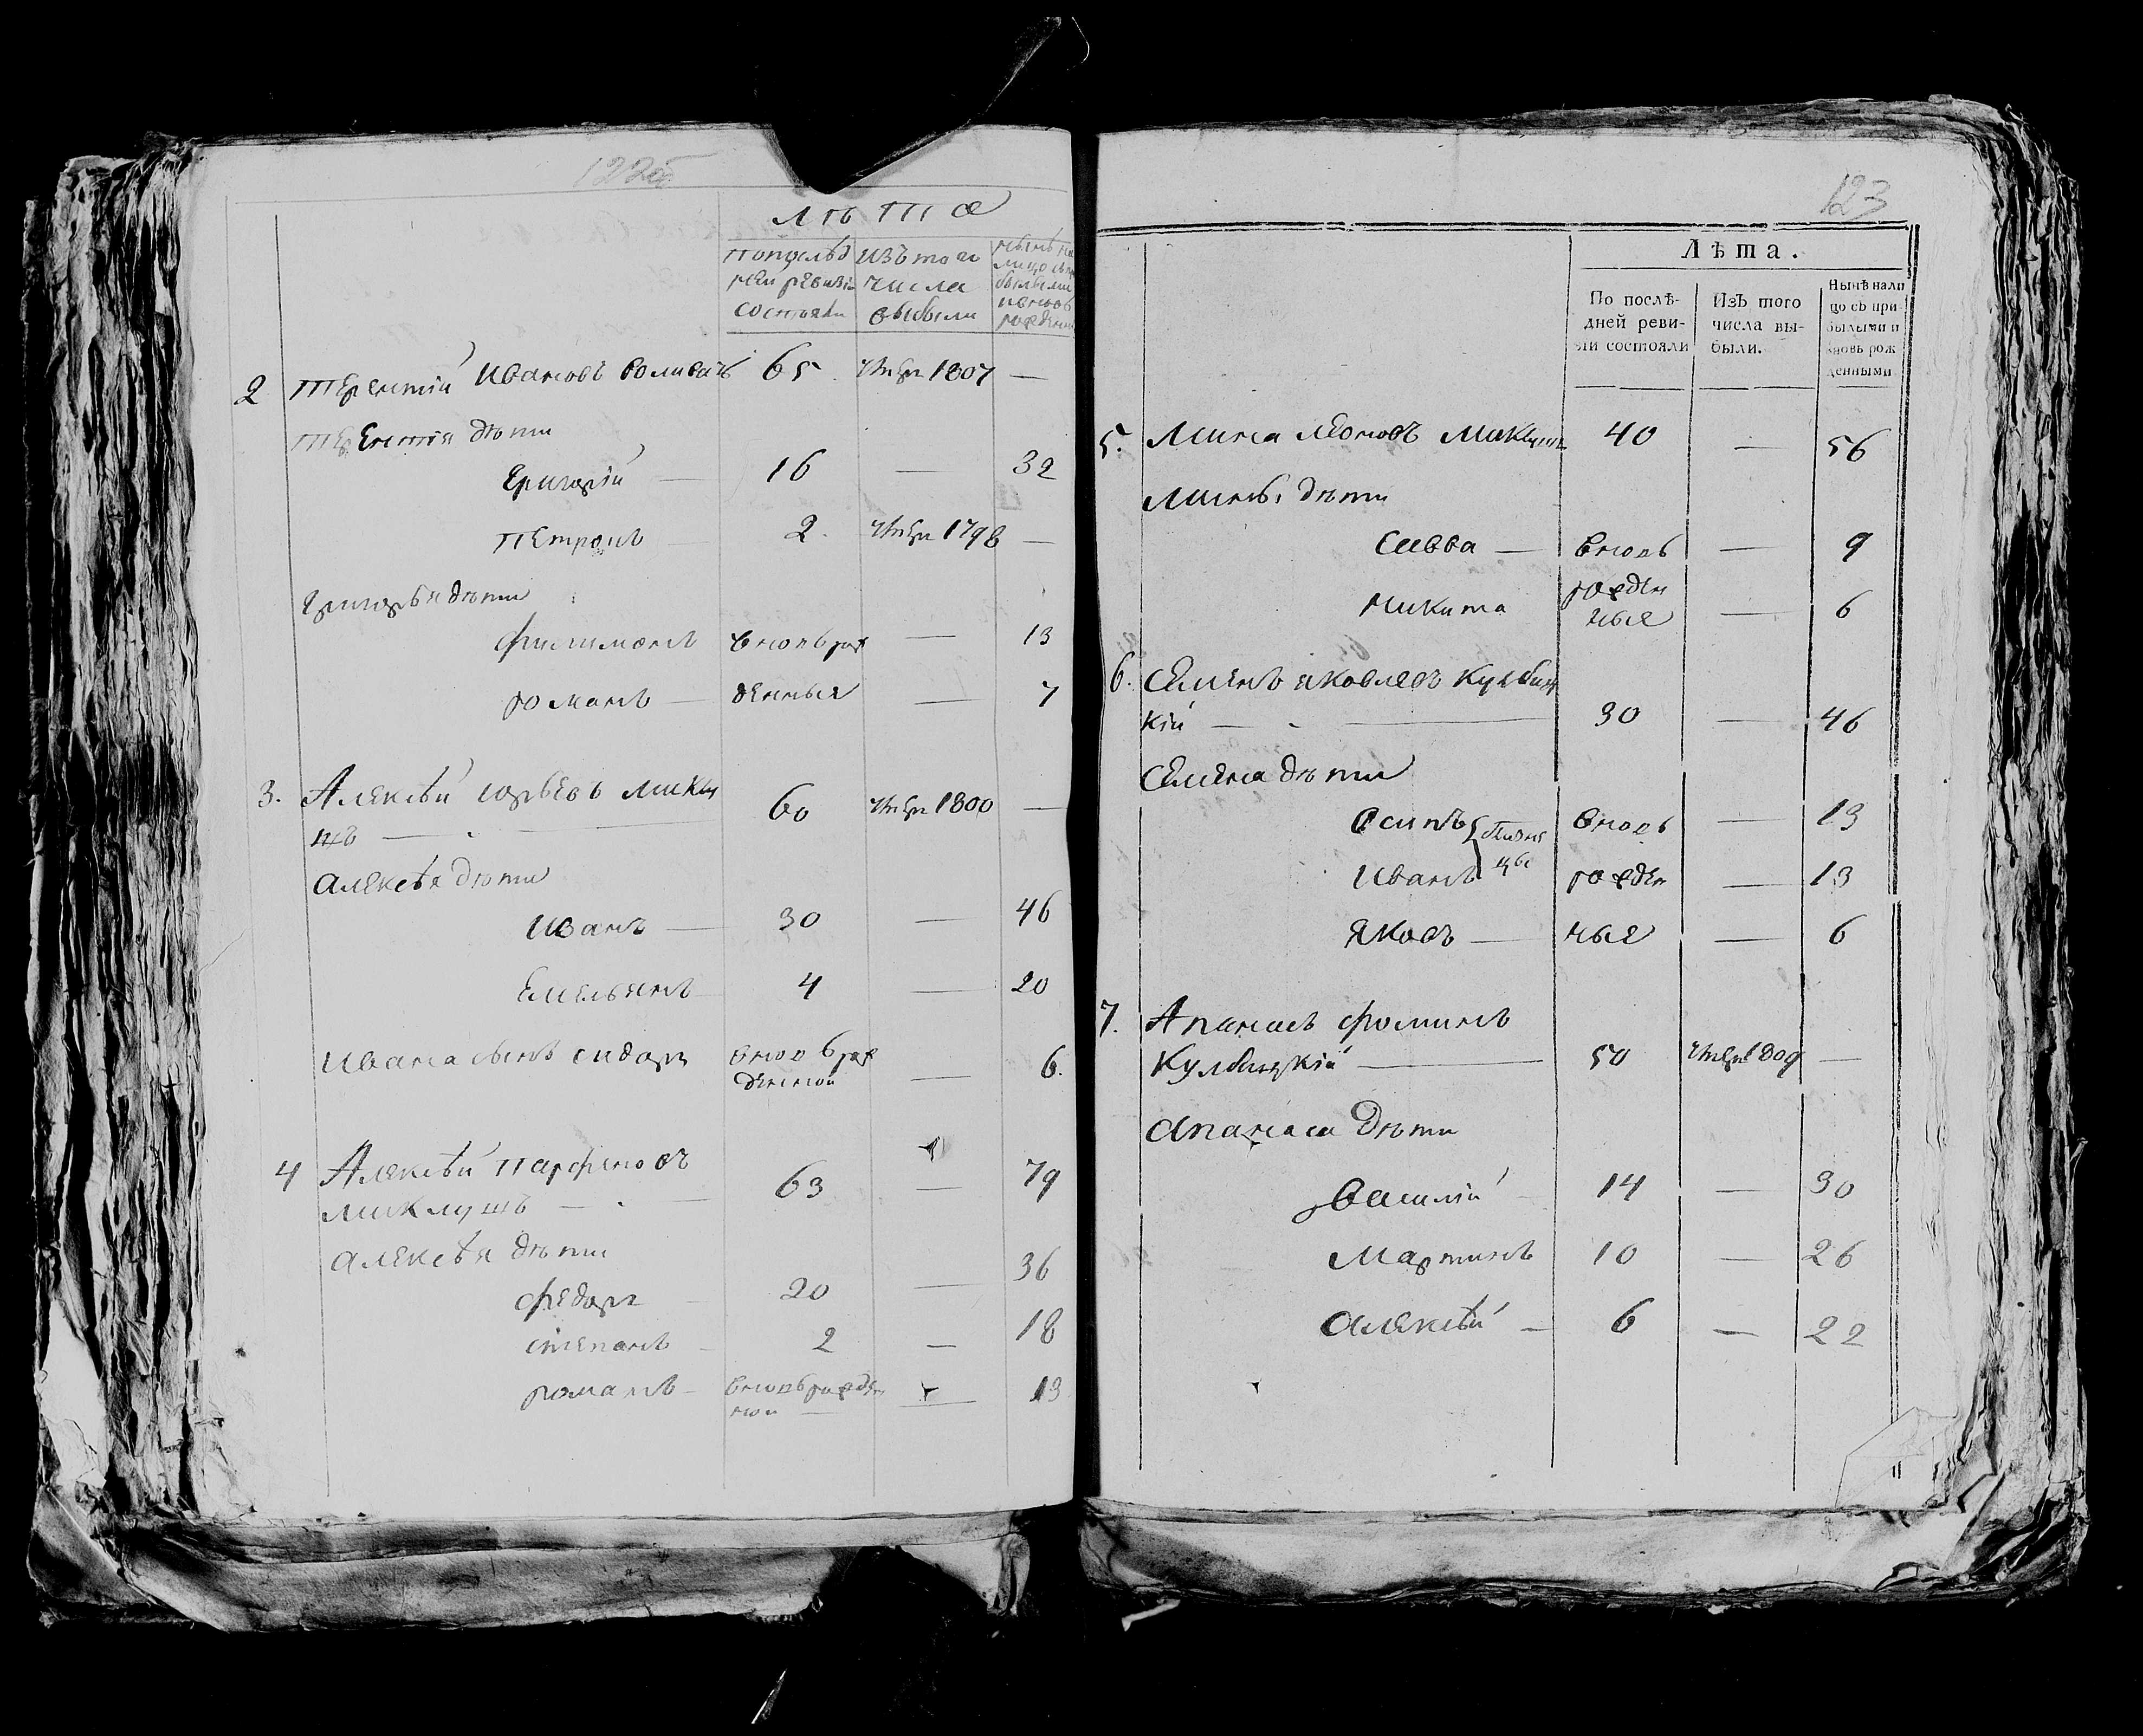 122об
Лѣта
попослѣд
ней ревизіи
состояли
изъ того
числа
выбыли
нынѣ на
лицо съ при
былыми
и вновь
рожденны
2 Терентій Ивановъ 65 умеръ 1807 —
Терентія дѣти
Григорій — 16 — 32
Петронъ — 2. умеръ 1798 —
Григорья дѣти
Филимонъ вновь рож — 13
Романъ — денныя — 7
3. Алексѣй Юрьевъ Миклу
шъ — 60 умеръ 1800 —
Алексѣя дѣти
Иванъ — 30 — 46
Емельянъ 4 — 20
Ивана сынъ Сидоръ вновь рож
денной — 6.
4 Алексѣй Парфеновъ
Миклушъ — 63 — 79
Алексѣя дѣти
Федоръ 20 — 36
Степанъ 2 — 18
Романъ — вновь рожден
ной — 13
123
Лѣта.
По послѣ-
дней реви-
зіи состояли
Изъ того
числа вы-
были.
Нынѣ нали
цо съ при-
былыми и
вновь рож
денными
5. Мина Леоновъ Миклушъ 40 — 56
Мины дѣти
Савва — вновь — 9
Никита рожден
ныя — 6
6. Семенъ Яковлевъ Кулбиц
кій — 30 — 46
Семена дѣти
Осипъ близне вновь — 13
Иванъ цы рожден — 13
Яковъ — ныя — 6
7. Апанасъ Фоминъ
Кулбицкій — 50 умеръ 1809 —
Апанаса дѣти
Василій 14 — 30
Мартинъ 10 — 26
Алексѣй — 6 — 22